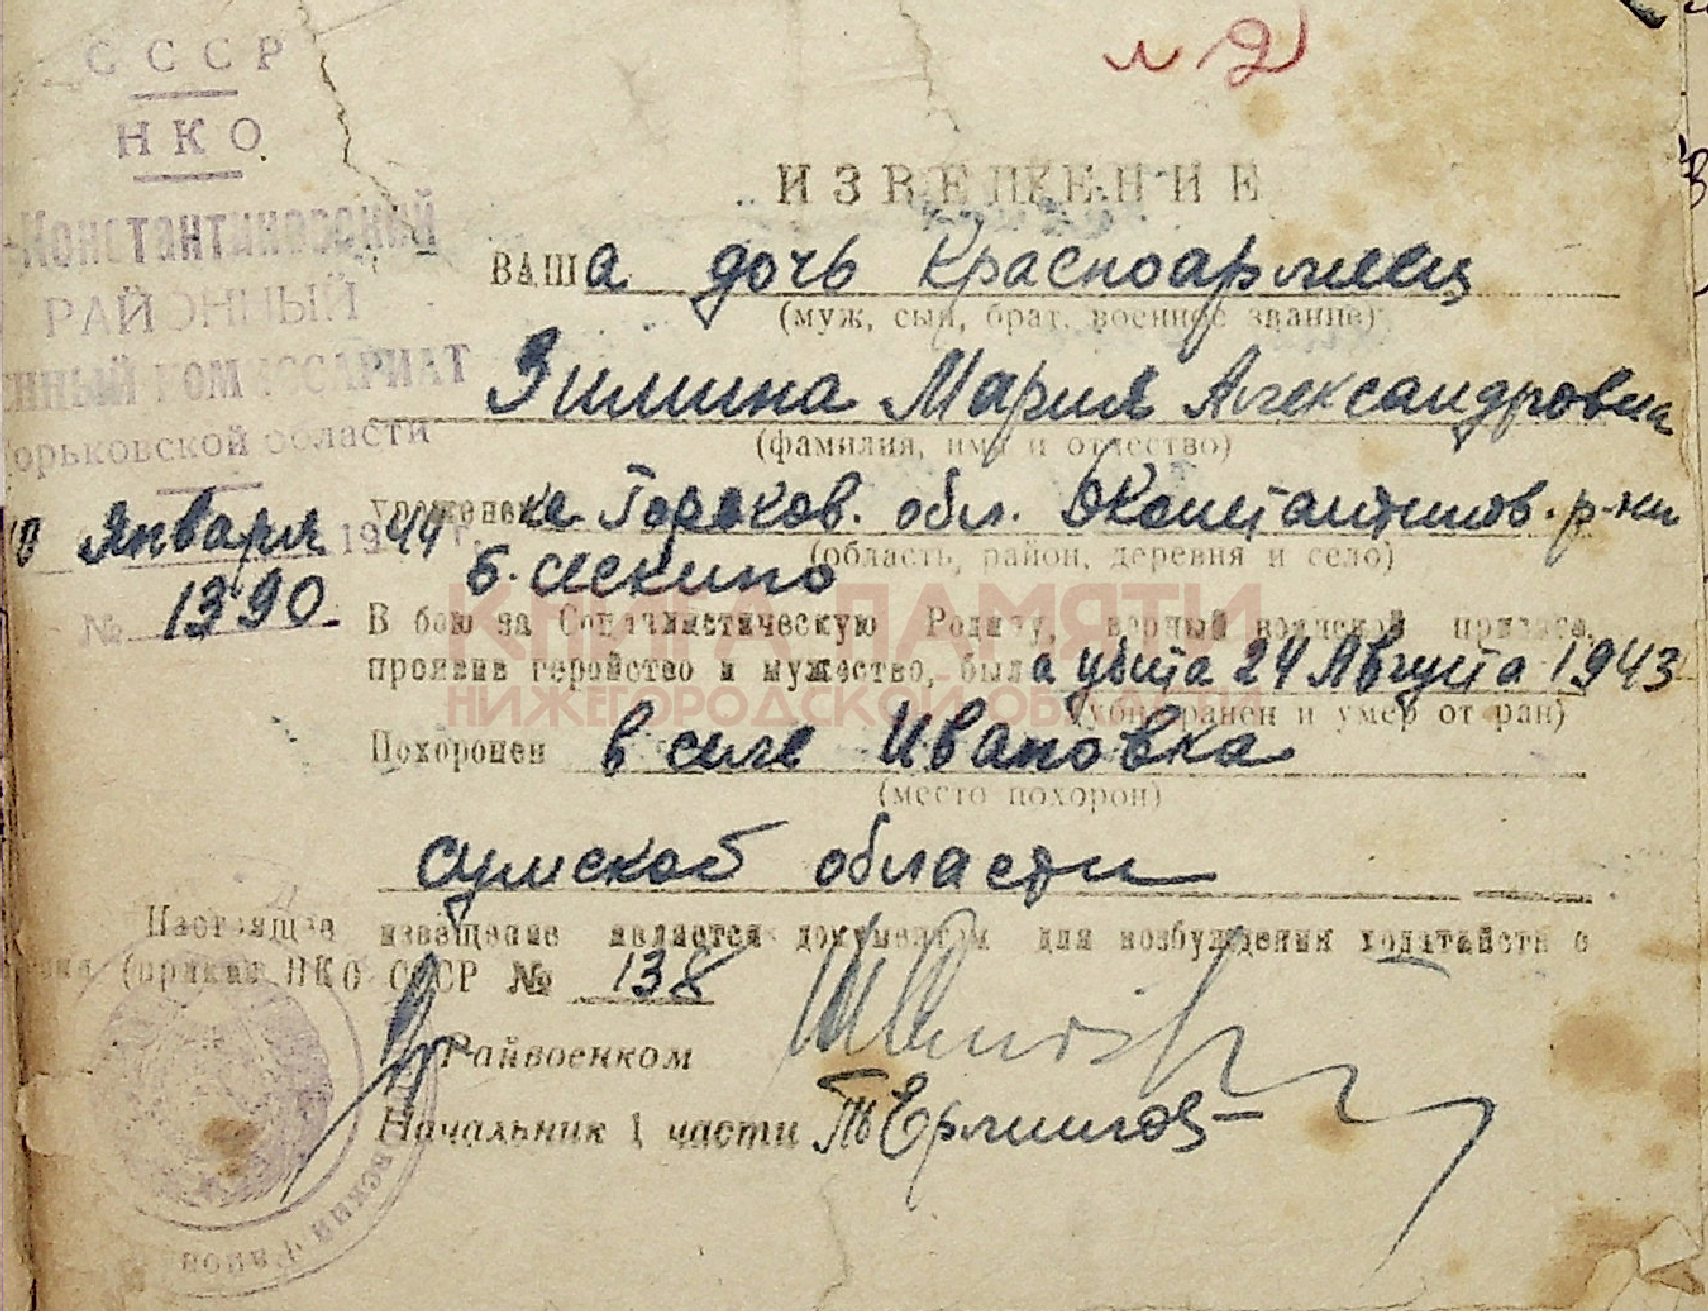 л 2
СССР
НКО
-Константиновский
РАЙОННЫЙ
ЕННЫЙ КОМИССАРИАТ
орьковской области
10 Января 1944 г.
№ 1390
ИЗВЕЩЕНИЕ
ВАШа дочь Красноармеец
(муж, сын, брат, военное звание)
Зимина Мария Александровна
(фамилия, имя и отчество)
уроженска Горьков. обл. Дконстантинов. р-на
(область, район, деревня и село)
б. Сескино
В бою за Социалистическую Родину, верный воинской присяге,
проявив геройство и мужество, была убита 24 Августа 1943
(убит, ранен и умер от ран)
Похоронен в селе Ивановка
(место похорон)
Сумской области
Настоящее извещение является документом для возбуждения ходатайств о
(приказ НКО СССР № 138
Райвоенком
Начальник 1 части
КНИГА ПАМЯТИ
НИЖЕГОРОДСКОЙ ОБЛАСТИ